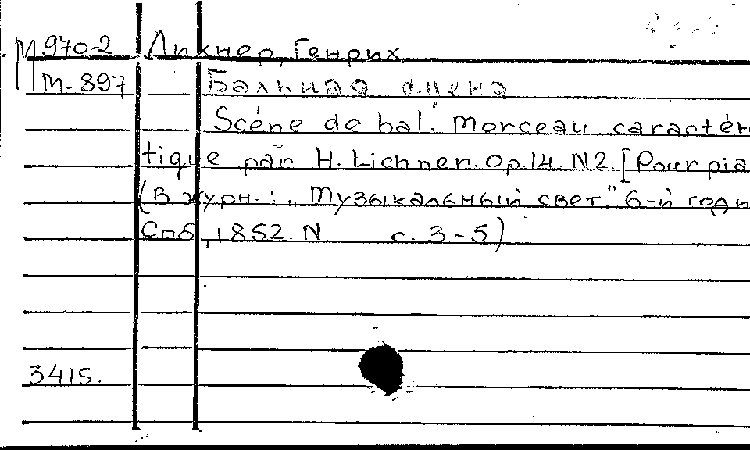 М 970-2 Лихнер, Генрих
М-897 Бальная сцена
Scéne de bal. Morceau caractér
tique par H. Lichner. Op.14 N2 [Pour pia
(В журн.: „Музыкальный свет" 6-й годъ
Спб, 1852 N с. 3-5)
3415.